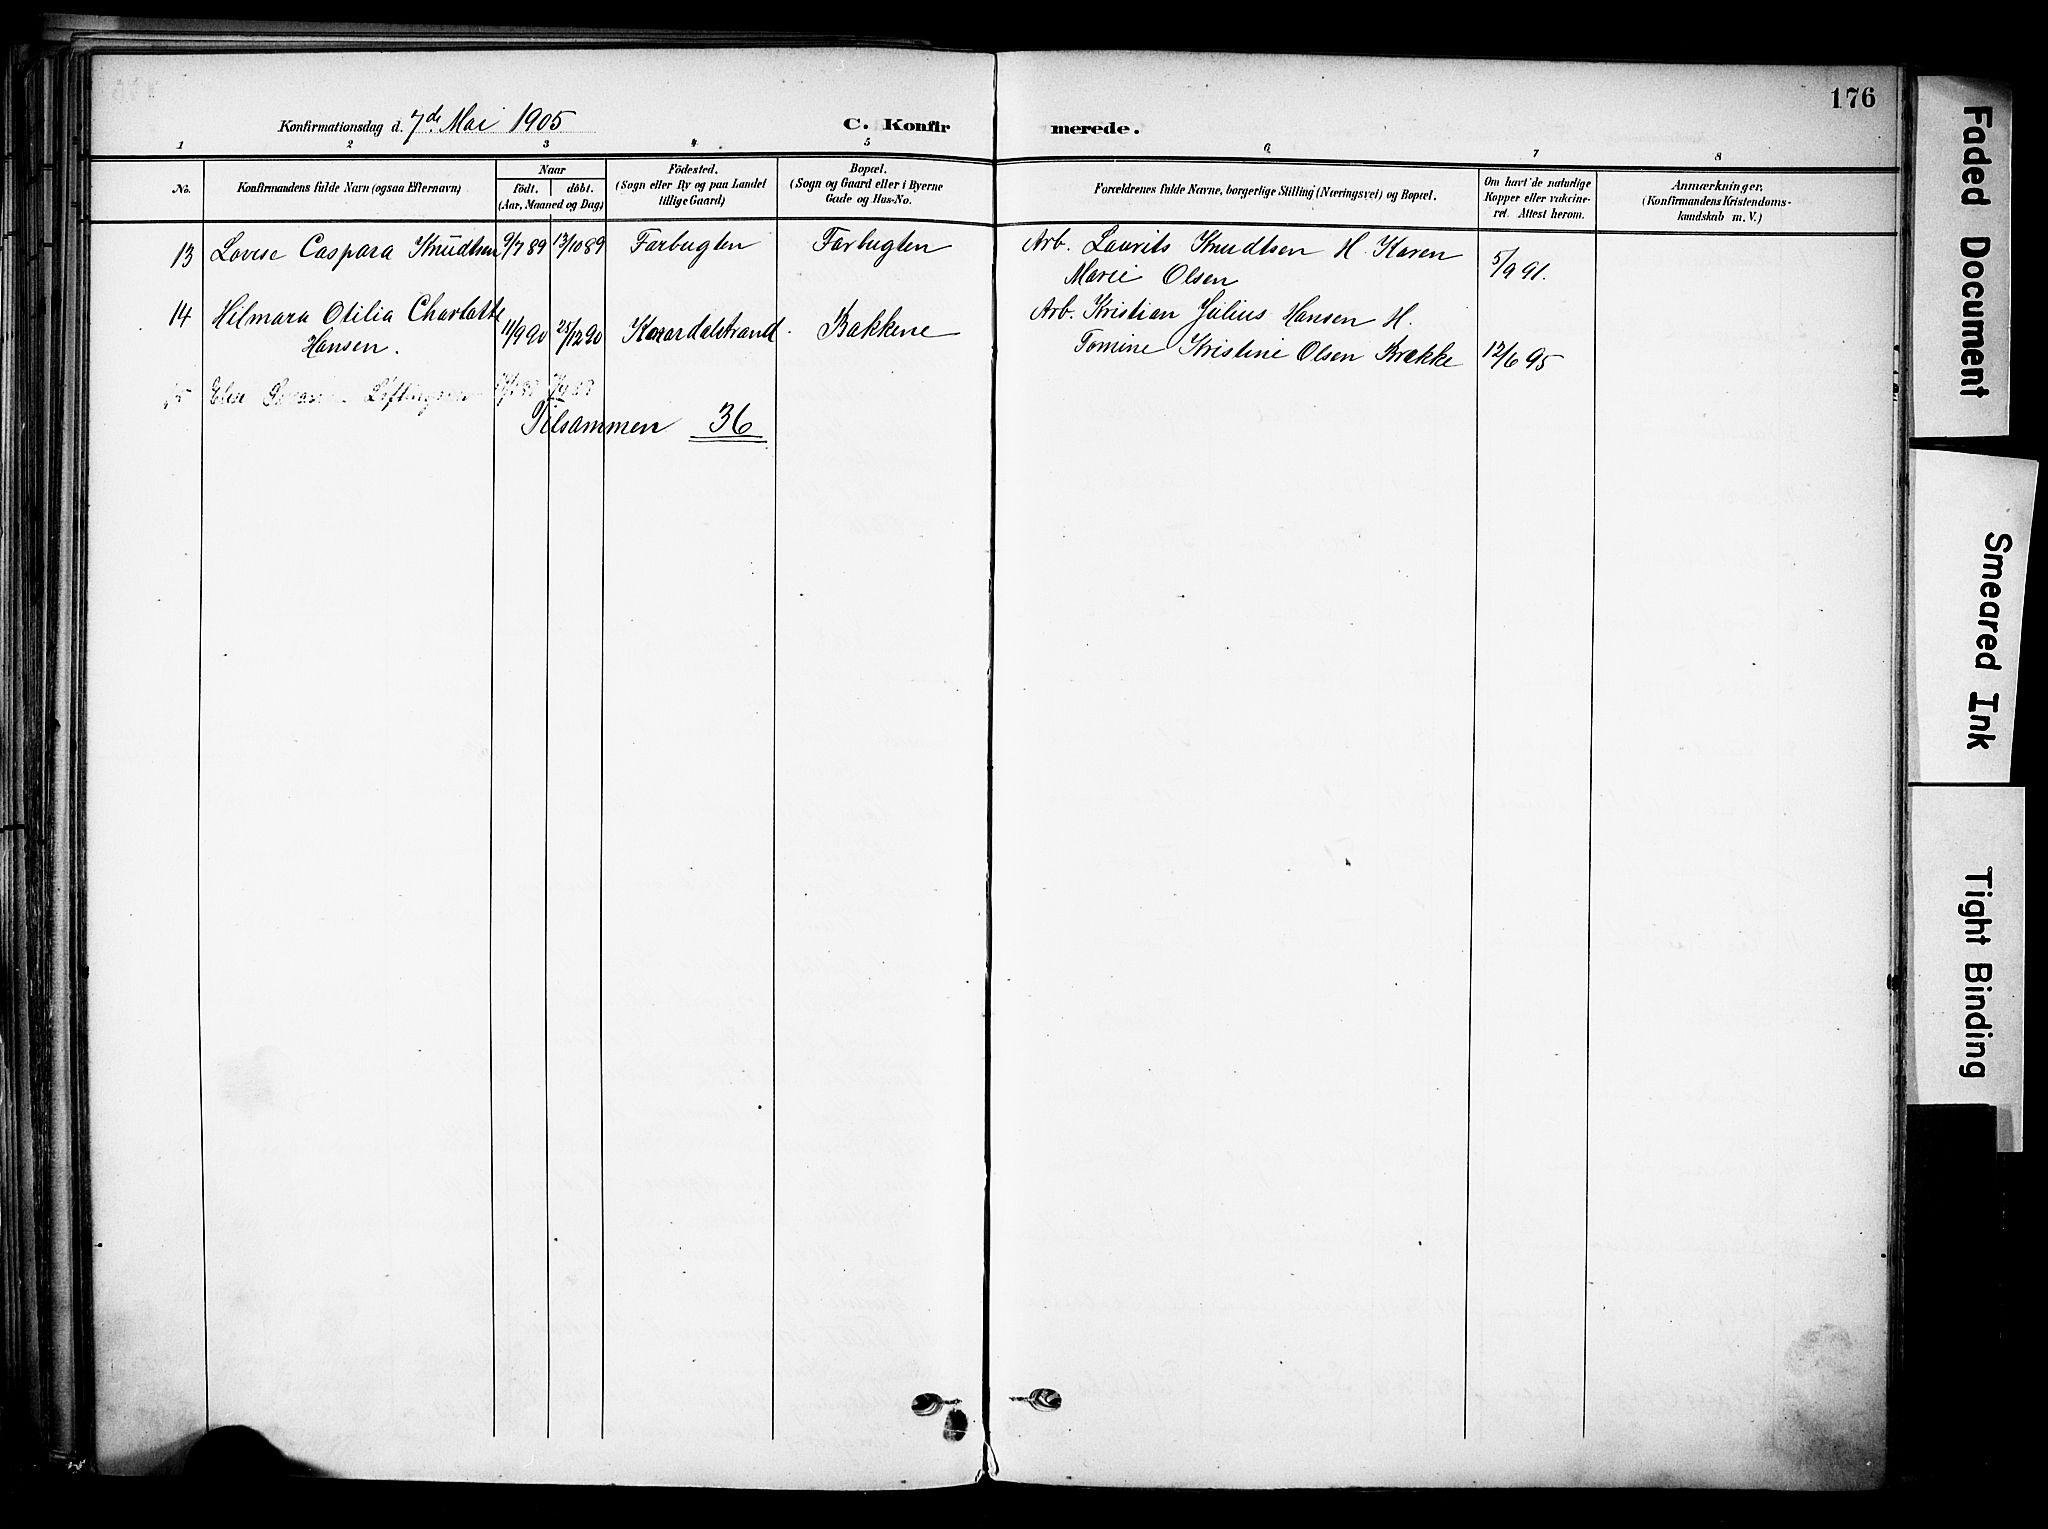 176
Konfirmationsdag d. 7de Mai 1905
C. Konfirmerede.
1 2 3 4 5 6 7 8
No.
Konfirmandens fulde Navn (ogsaa Efternavn)
Naar
født. døbt.
(Aar, Maaned og Dag)
Fødested.
(Sogn eller By og paa Landet
tillige Gaard)
Bopæl.
(Sogn og Gaard eller i Byerne
Gade og Hus-No.
Forældrenes fulde Navne, borgerlige Stilling (Næringsvei) og Bopæl.
Om havt de naturlige
Kopper eller vakcine-
ret. Attest herom.
Anmærkninger.
(Konfirmandens Kristendoms-
kundskab m. V.)
13 Lovise Caspara Knudtsen 9/7 89 13/10 89 Farbugten Farbugten Arb. Laurits Knudtsen H. Karen
Marie Olsen 5/9 91.
14 Hilmara Otilia Charlotte
Hansen. 11/9 90 25/12 90 Bakkene Arb. Kristian Julius Hansen H.
Tomine Kristine Olsen Brække 12/6 95
15 Elise
Tilsammen 36
Faded Document
Smeared Ink
Tight Binding